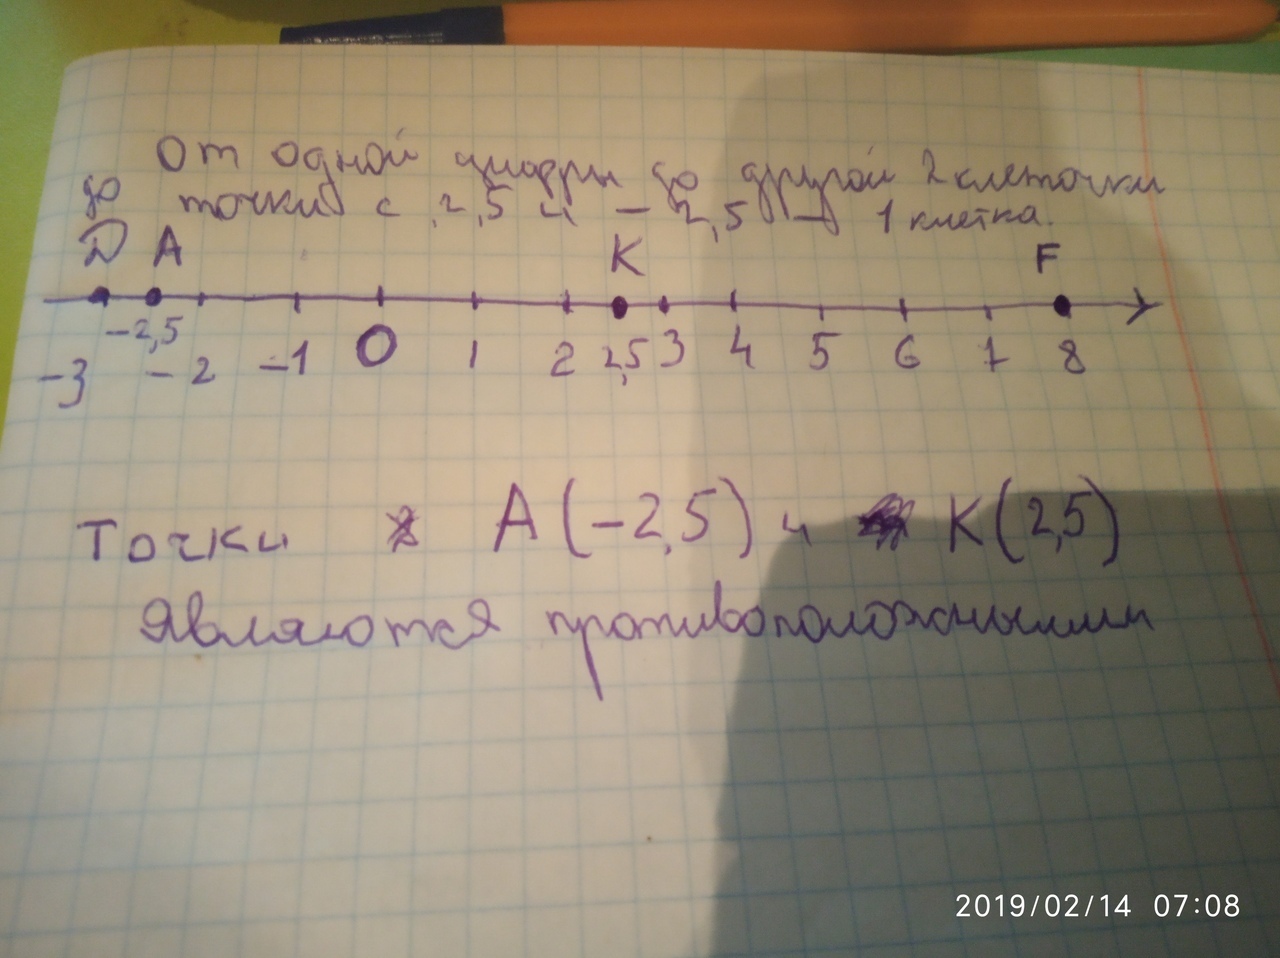 От одной цифры до другой 2 клеточки
до точки с 2,5 и – 2,5 – 1 клетка.
D A K F
-3 -2,5 -2 -1 0 1 2 2,5 3 4 5 6 7 8
Точки A(-2,5) и K(2,5)
являются противоположными
2019/02/14 07:08